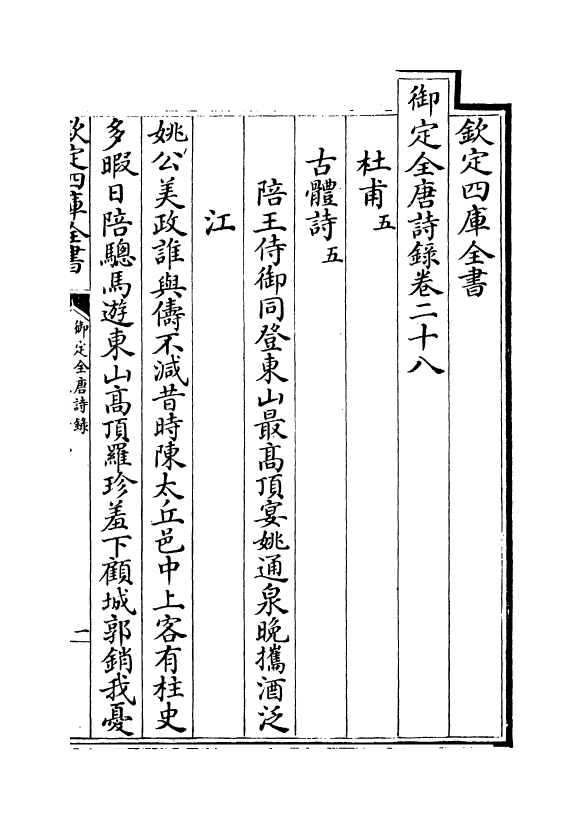 欽定四庫全書
御定全唐詩錄卷二十八
杜甫五
古體詩五
陪王侍御同登東山最髙頂宴姚通泉晚攜酒泛
江
姚公美政誰與儔不減昔時陳太丘邑中上客有柱史
多暇日陪驄馬遊東山髙頂羅珍羞下顧城郭銷我憂
欽定四庫全書
御定全唐詩錄
一